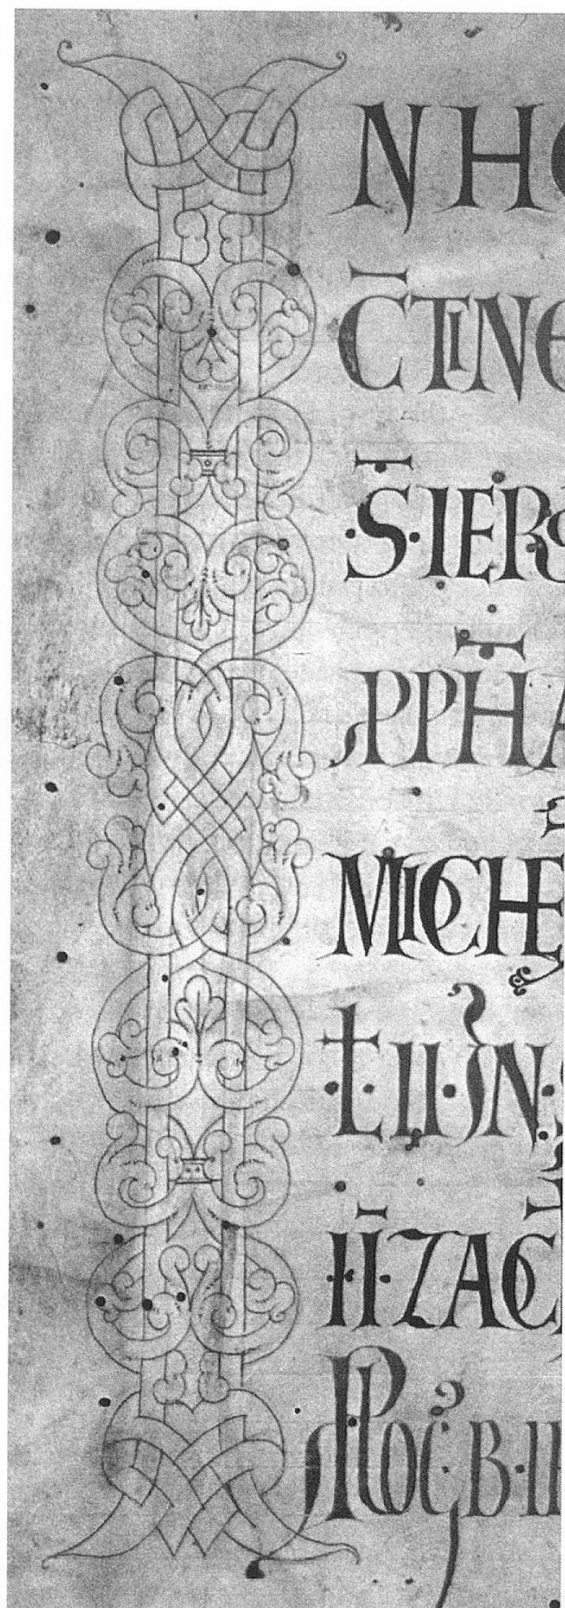 INHO
C̄TINE
·S̄·IERO
PP̄HA
MICHE
·Ł·II·IN·S
·ĪI·ZAC̄
PROC̄·B·II